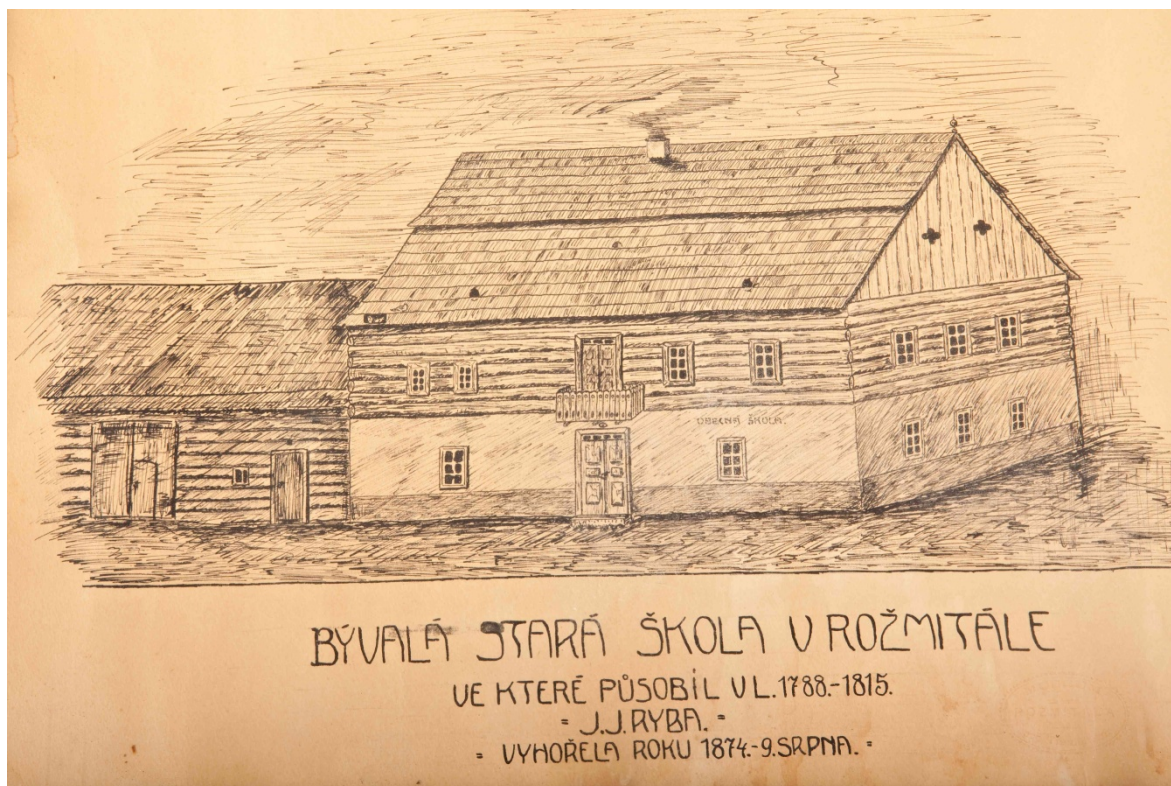 OBECNÁ ŠKOLA.
BÝVALÁ STARÁ ŠKOLA V ROŽMITÁLE
VE KTERÉ PŮSOBIL V L. 1788.-1815.
= J.J.RYBA. =
= VYHOŘELA ROKU 1874.-9.SRPNA. =